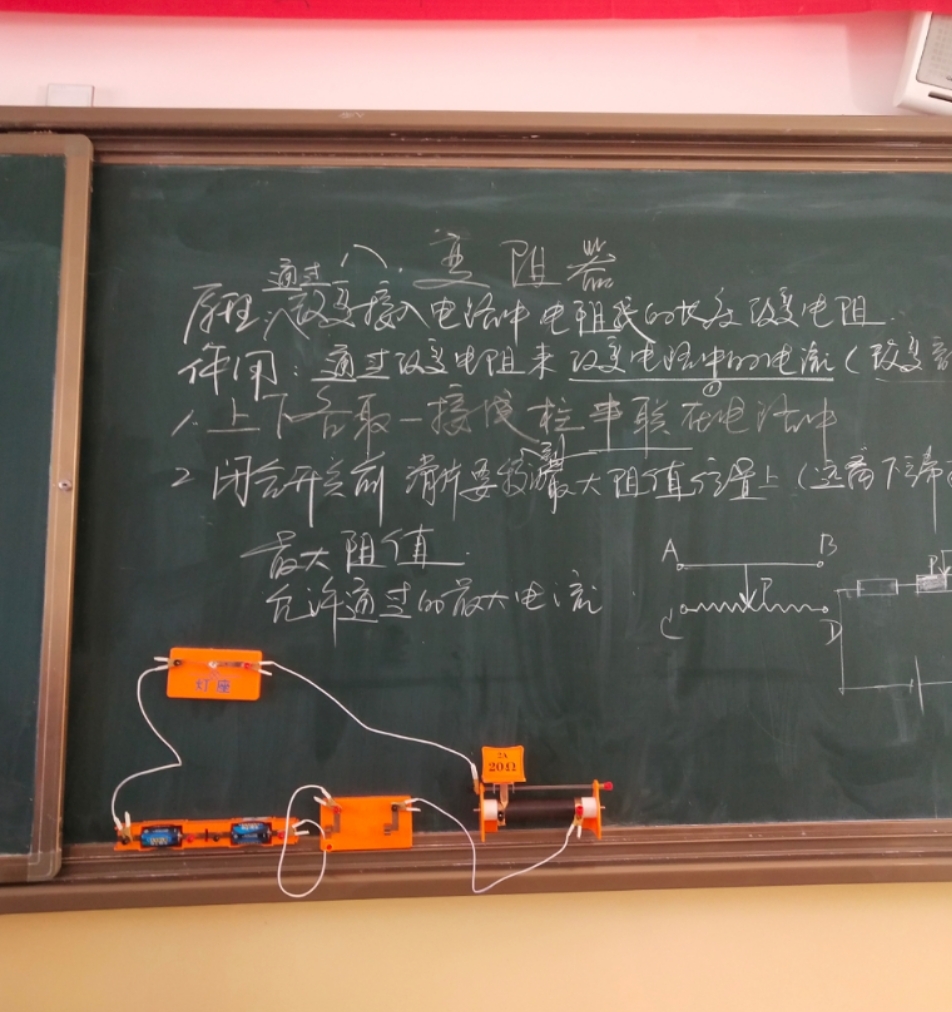 八、变阻器
通过
原理：改变接入电路中电阻线的长度改变电阻
作用：通过改变电阻来改变电路中的电流（改变
1、上下各取一接线柱串联在电路中
2 闭合开关前 滑片要移到最大阻值位置上（远离下
最大阻值
允许通过的最大电流
A B
P
C D
P
灯座
2A
20Ω